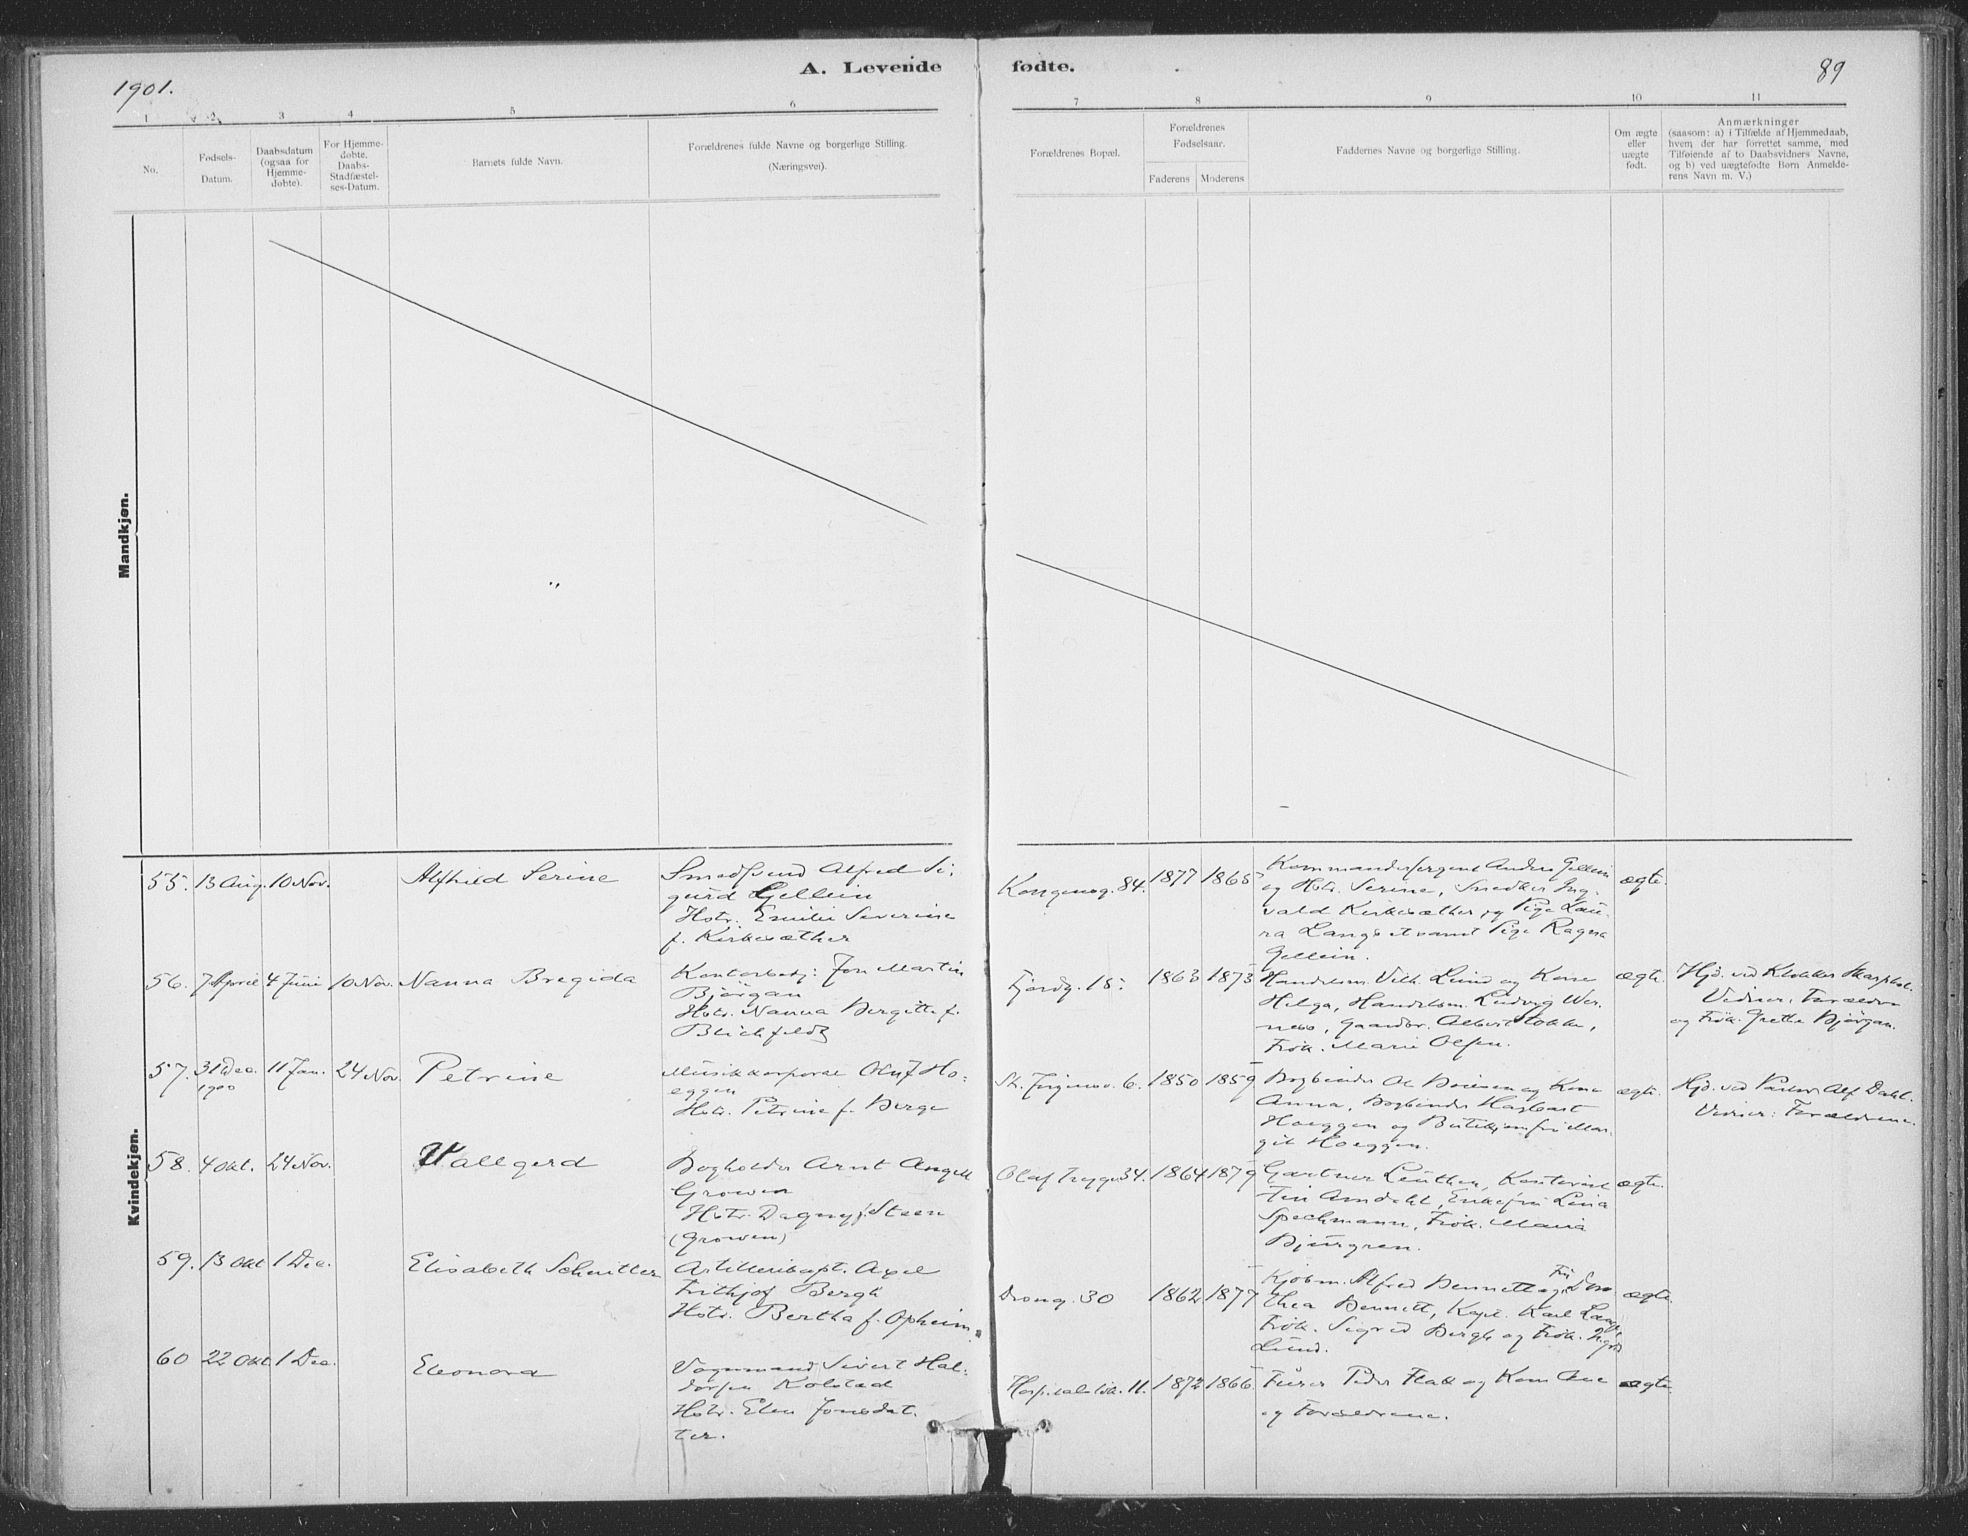 1901.
A. Levende fødte.
89
1
2
3
4
5
6
7
8
9
10
11
No.
Fødsels-
Datum.
Daabsdatum
(ogsaa for
Hjemme-
døbte).
For Hjemme-
døbte,
Daabs-
Stadfæstel-
ses-Datum.
Barnets fulde Navn.
Forældrenes fulde Navne og borgerlige Stilling.
(Næringsvei).
Forældrenes Bopæl.
Forældrenes
Fødselsaar.
Faderens
Moderens
Faddernes Navne og borgerlige Stilling.
Om ægte
eller
uægte
født.
Anmærkninger
(saasom: a) i Tilfælde af Hjemmedaab,
hvem der har forrettet samme, med
Tilføiende af to Daabsvidners Navne,
og b) ved uægtefødte Børn Anmelde-
rens Navn m. V.)
Mandkjøn.
Kvindekjøn.
55. 13 Aug. 10 Nov. Alfhild Serine
Smedsvend Alfred Si-
gurd Gellein
Hstr. Emilie Severine
f. Kirkesæther
Kongensg. 84. 1877 1865
Kommandersergent Anders Gellein
og Hstr. Serine, Snedker Ing-
vald Kirkesæther, og Pige Lau-
ra Langset samt Pige Ragna
Gellein.
ægte.
56. 7 April 4 Juni 10 Nov. Nanna Bregida
Kontorbetj: Jon Martin
Bjørgan
Hstr. Nanna Bergitte f.
Blichfeldt
Fjordg. 18. 1863 1873
Handelsm. Vilh. Lund og Kone
Helga, Handelsm. Ludvig Wer-
ness, Gaardbr. Albert Stokke,
Frøk. Marie Olsen.
ægte.
Hjd. ved Klokker
Vidner: Forældre
og Frøk. Grethe Bjørgan.
57. 31 Dec. 1900 11 Jan. 24 Nov. Petrine
Musikkorporal Oluf Ho-
eggen
Hstr. Petrine f. Berge
St. Jørgensv. 6. 1850 1859
Bogbinder Ole og Kone
Anna, Bogbinder Hagbart
Hoeggen og Butikjomfru Mar-
git Hoeggen.
ægte.
Hjd. ved Pastor Alf Dahl.
Vidner: Forældrene.
58. 4 Okt. 24 Nov. Vallgerd
Bogholder Arnt Angell
Growen
Hstr. Dagny f. Steen
(Growen)
Olaf Trygv. 34. 1864 1879
Gartner Leuthen, Kontorist
Finn Amdahl, Enkefru Lina
Spechmann, Frøk. Maria
Bjurgren.
ægte.
59. 13 Okt 1 Dec. Elisabeth Schnitler
Artillerikapt. Axel
Frithjof Bergh
Hstr. Bertha f. Opheim.
Drong. 30 1862 1877
Kjøbm. Alfred Bennett og Fru Doro-
thea Bennett, Kapt. Karl Lange
Frøk. Sigrid Bergh og Frøk.
Lund.
ægte.
60 22 Okt. 1 Dec. Eleonora
Vognmand Sivert Hal-
dorsen Kolstad
Hstr. Elen Jonsdat-
ter.
Hospitalsløk. 11. 1872 1866
Fører Peder Flak og Kone Ane
og Forældrene.
ægte.